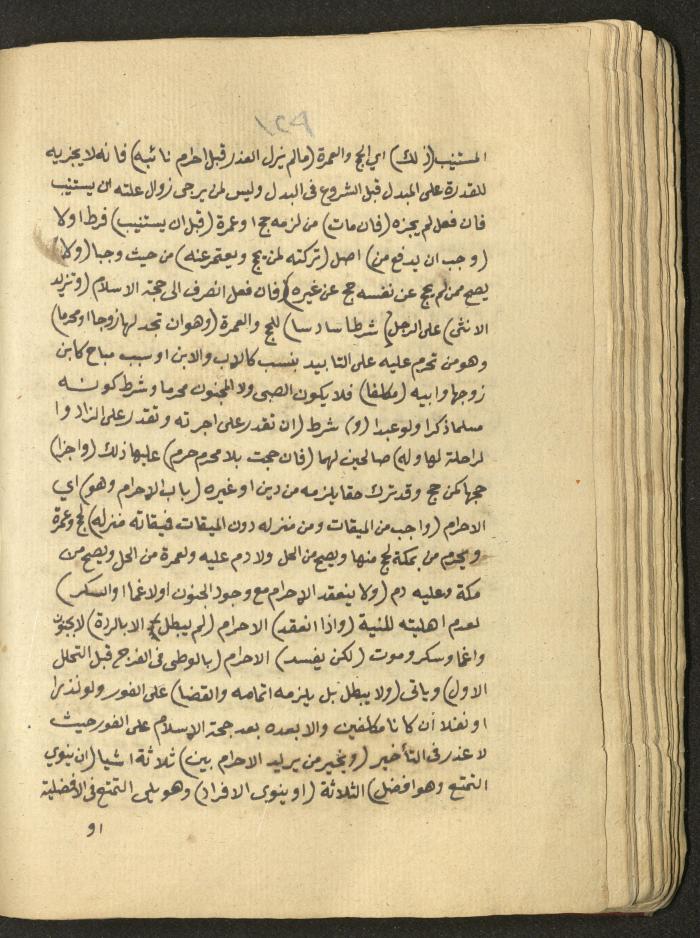 المستنيب (ذلك) اي الحج والعمرة (ما لم يزل العذر قبل احرام نائبه) فانه لا يجزيه
للقدرة على المبدل قبل الشروع في البدل وليس لمن يرجى زوال علته ان يستنيب
فان فعل لم يجزه (فان مات) من لزمه حج او عمرة (قبل ان يستنيب) فرط او لا
(وجب ان يدفع من) اصل (تركته لمن يحج ويعتمر عنه) من حيث وجبا (ولا)
يصح ممن لم يحج عن نفسه حج عن غيره) فان فعل انصرف الى حجة الاسلام (وتزيد
الانثى) على الرجل (شرطا سادسا) للحج والعمرة (وهو ان تجد لها زوجا او محرما)
وهو من تحرم عليه على التابيد بنسب كالاب والابن او سبب مباح كابن
زوجها وابيه (مكلفا) فلا يكون الصبي ولا المجنون محرما وشرط كونه
مسلما ذكرا ولو عبدا (و) شرط (ان تقدر على اجرته وتقدر على الزاد وا
لراحلة لها وله) صالحين لهما (فان حجت بلا محرم حرم) عليها ذلك (واجزا)
حجها كمن حج وقد ترك حقا يلزمه من دين او غيره (باب الاحرام وهو) اي
الاحرام (واجب من الميقات ومن منزله دون الميقات فميقاته منزله) لحج وعمرة
ويحرم من بمكة لحج منها ويصح من الحل ولا دم عليه ولعمرة من الحل ويصح من
مكة وعليه دم (ولا ينعقد الاحرام مع وجود الجنون او الاغما او السكر)
لعدم اهليته للنية (واذا انعقد) الاحرام (لم يبطل الا بالردة) لا بجنون
واغما وسكر وموت (لكن يفسد) الاحرام (بالوطى في الفرج قبل التحلل
الاول) وياتى (ولا يبطل بل يلزمه اتمامه والقضا) على الفور ولو نذرا
او نفلا ان كانا مكلفين والا بعده بعد حجة الاسلام على الفور حيث
لا عذر في التأخير (ويخير من يريد الاحرام بين) ثلاثة اشيا (ان ينوي
التمتع وهو افضل) الثلاثة (او ينوى الافراد) وهو يلي التمتع في الافضلية
او